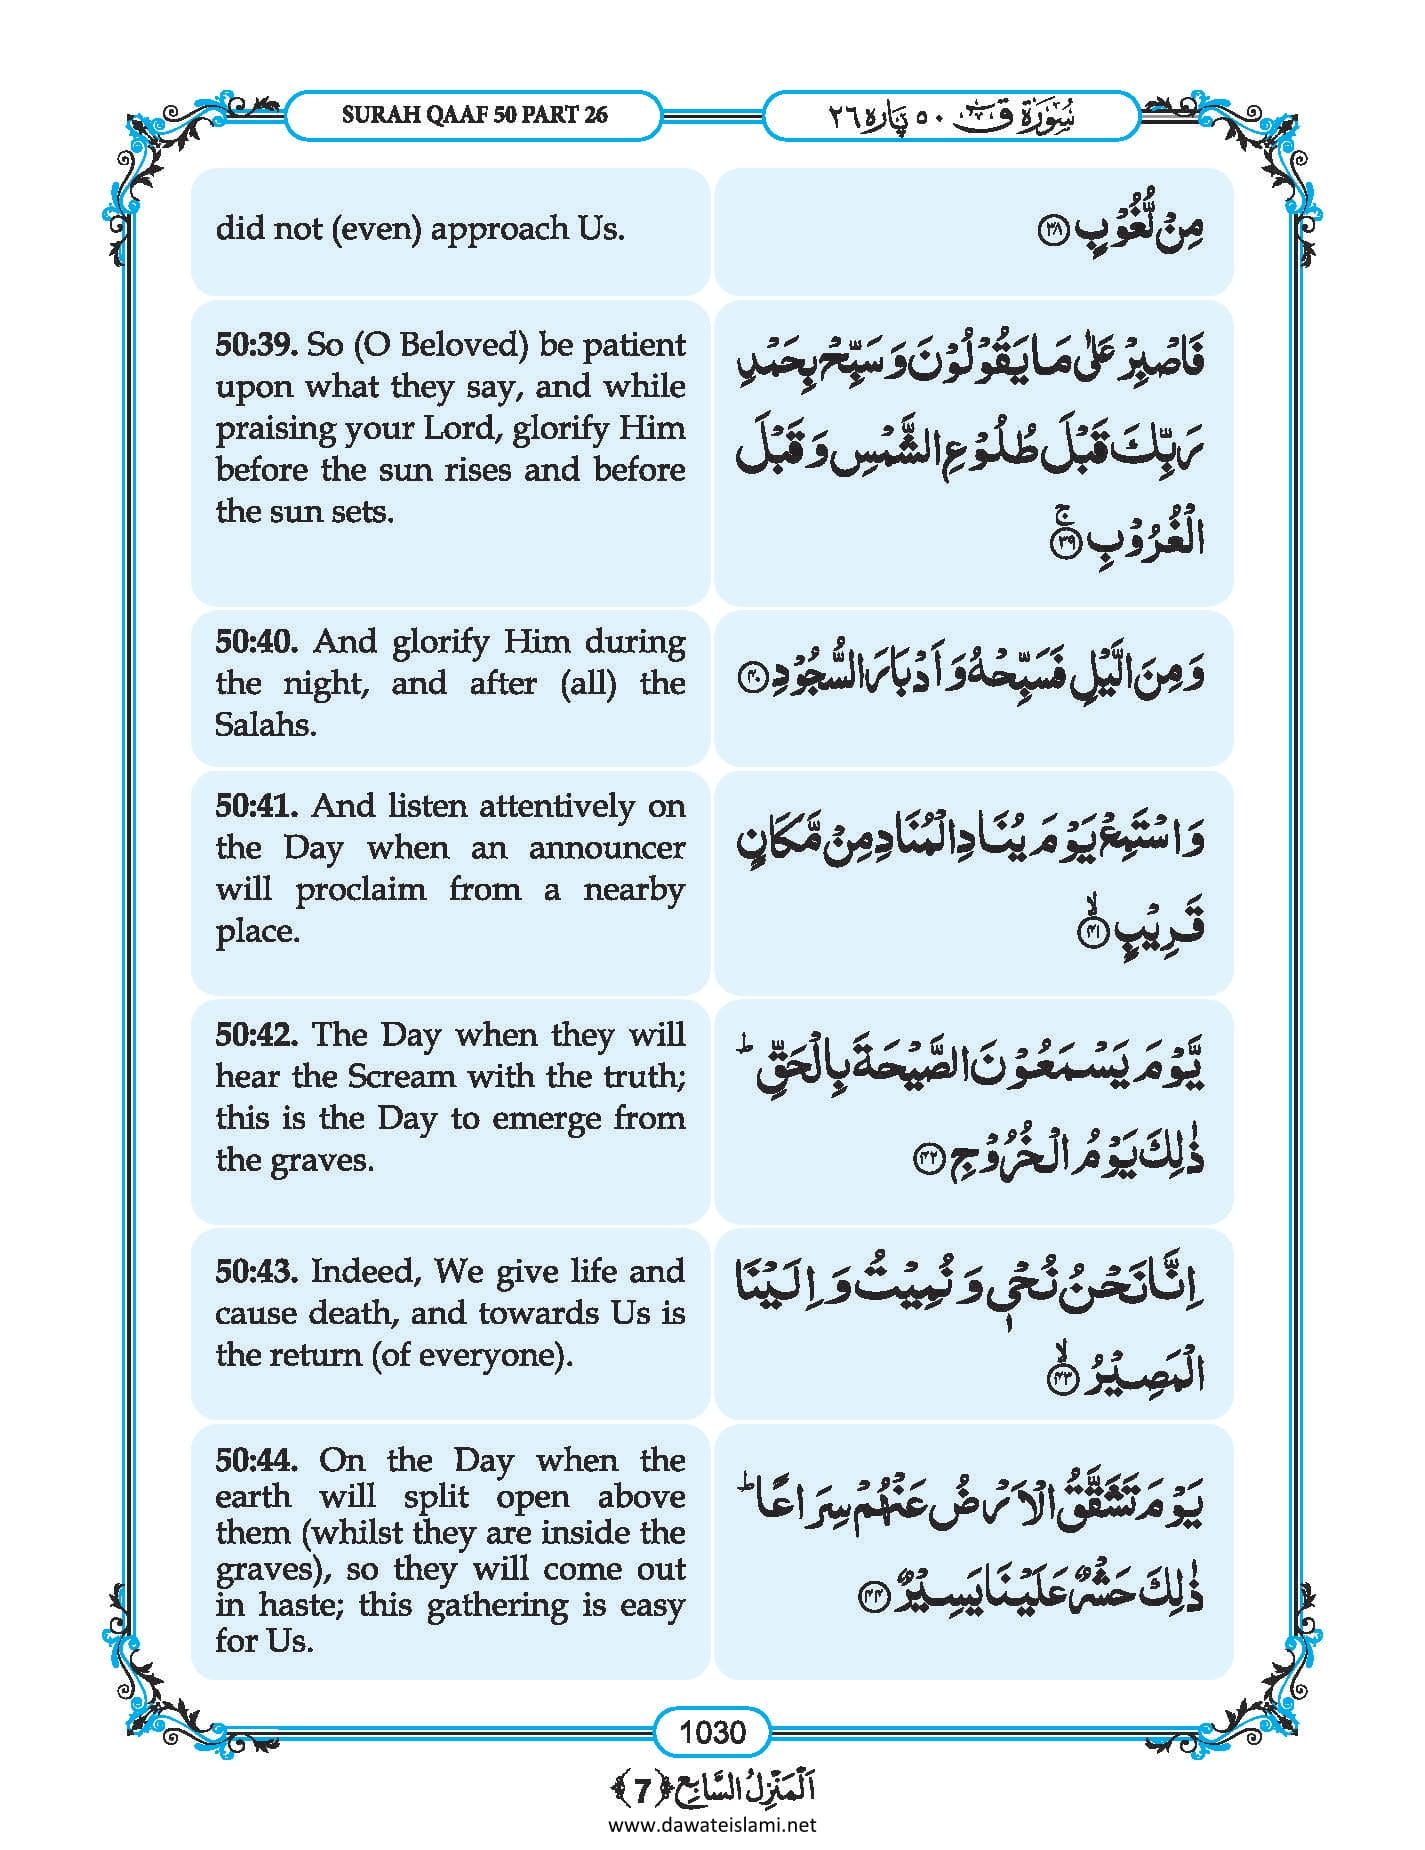 SURAH QAAF 50 PART 26
سُوْرَۃ قٓ ۵۰ پارہ ۲۶
did not (even) approach Us.
مِنْ لُّغُوْبٍ ﴿۳۸﴾
50:39. So (O Beloved) be patient
upon what they say, and while
praising your Lord, glorify Him
before the sun rises and before
the sun sets.
فَاصْبِرْ عَلٰی مَا یَقُوْلُوْنَ وَ سَبِّحْ بِحَمْدِ
رَبِّكَ قَبْلَ طُلُوْعِ الشَّمْسِ وَ قَبْلَ
الْغُرُوْبِ ۚ﴿۳۹﴾
50:40. And glorify Him during
the night, and after (all) the
Salahs.
وَ مِنَ الَّیْلِ فَسَبِّحْهُ وَ اَدْبَارَ السُّجُوْدِ ﴿۴۰﴾
50:41. And listen attentively on
the Day when an announcer
will proclaim from a nearby
place.
وَ اسْتَمِعْ یَوْمَ یُنَادِ الْمُنَادِ مِنْ مَّكَانٍ
قَرِیْبٍ ۙ﴿۴۱﴾
50:42. The Day when they will
hear the Scream with the truth;
this is the Day to emerge from
the graves.
یَّوْمَ یَسْمَعُوْنَ الصَّیْحَةَ بِالْحَقِّ ؕ
ذٰلِكَ یَوْمُ الْخُرُوْجِ ﴿۴۲﴾
50:43. Indeed, We give life and
cause death, and towards Us is
the return (of everyone).
اِنَّا نَحْنُ نُحْیٖ وَ نُمِیْتُ وَ اِلَیْنَا
الْمَصِیْرُ ۙ﴿۴۳﴾
50:44. On the Day when the
earth will split open above
them (whilst they are inside the
graves), so they will come out
in haste; this gathering is easy
for Us.
یَوْمَ تَشَقَّقُ الْاَرْضُ عَنْهُمْ سِرَاعًا ؕ
ذٰلِكَ حَشْرٌ عَلَیْنَا یَسِیْرٌ ﴿۴۴﴾
1030
اَلْمَنْزِلُ السَّابِع ﴿7﴾
www.dawateislami.net